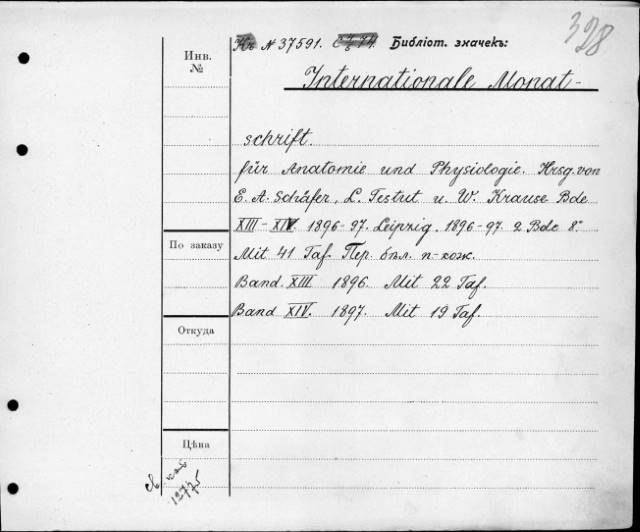 № 37591. Библіот. значекъ:
328
Инв.
№
Internationale Monat-
schrift.
für Anatomie und Physiologie. Hrsg. von
E. A. Schäfer, L. Testut u. W. Krause Bde
XIII-XIV. 1896-97. Leipzig. 1896-97. 2 Bde 8°
По заказу
Mit 41 Taf. Пер. бѣл. п-кож.
Band. XIII 1896. Mit 22 Taf.
Band XIV. 1897. Mit 19 Taf.
Откуда
Цѣна